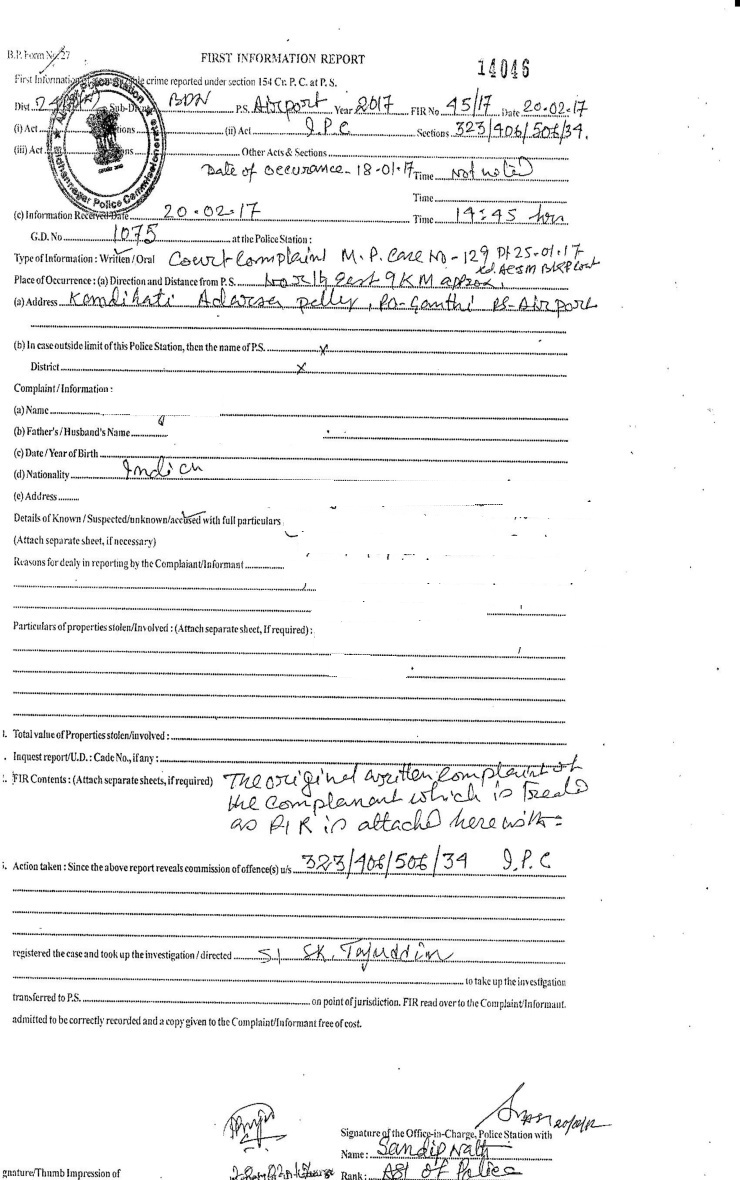 B.P. Form No. 27
FIRST INFORMATION REPORT
14046
First Information of cognizable crime reported under section 154 Cr. P. C. at P. S.
Dist. Sub-Div. BDN P.S. Airport Year 2017 FIR No 45/17 Date 20-02-17
(i) Act Sections (ii) Act I.P.C Sections 323/406/506/34.
(iii) Act Other Acts & Sections
Date of occurance - 18-01-17 Time Not noted
Time
(c) Information Received Date 20-02-17 Time 14:45 hrs
G.D. No 1075 at the Police Station :
Type of Information : Written / Oral Court Complaint M.P. Case No - 129 Dt 25-01-17
Ld. ACJM BKP Court
Place of Occurrence : (a) Direction and Distance from P.S. North East 9 KM approx,
(a) Address Kandihati Adarsa pelley, PO- Ganthi PS- Airport
(b) In case outside limit of this Police Station, then the name of P.S. x
District x
Complaint / Information :
(a) Name
(b) Father's / Husband's Name
(c) Date / Year of Birth
(d) Nationality Indian
(e) Address
Details of Known / Suspected/unknown/accused with full particulars
(Attach separate sheet, if necessary)
Reasons for dealy in reporting by the Complaiant/Informant
Particulars of properties stolen/Involved : (Attach separate sheet, If required) :
. Total value of Properties stolen/involved :
. Inquest report/U.D. : Cade No., if any :
. FIR Contents : (Attach separate sheets, if required) The original written complaint of
the complanant which is treated
as FIR is attached here with =
. Action taken : Since the above report reveals commission of offence(s) u/s 323/406/506/34 I.P.C
registered the case and took up the investigation / directed SI SK. Tajuddin
to take up the investigation
transferred to P.S. on point of jurisdiction. FIR read over to the Complaint/Informant.
admitted to be correctly recorded and a copy given to the Complaint/Informant free of cost.
Signature of the Office-in-Charge, Police Station with
Name : Sandip Nath
gnature/Thumb Impression of Rank : ASI of Police